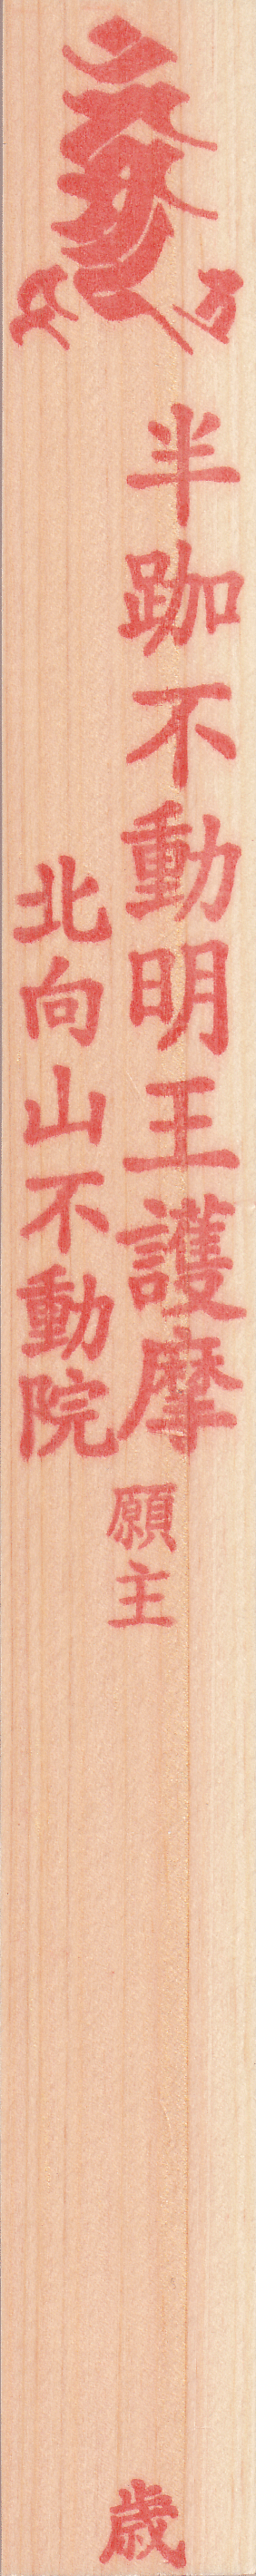 半跏不動明王護摩
願主
歳
北向山不動院